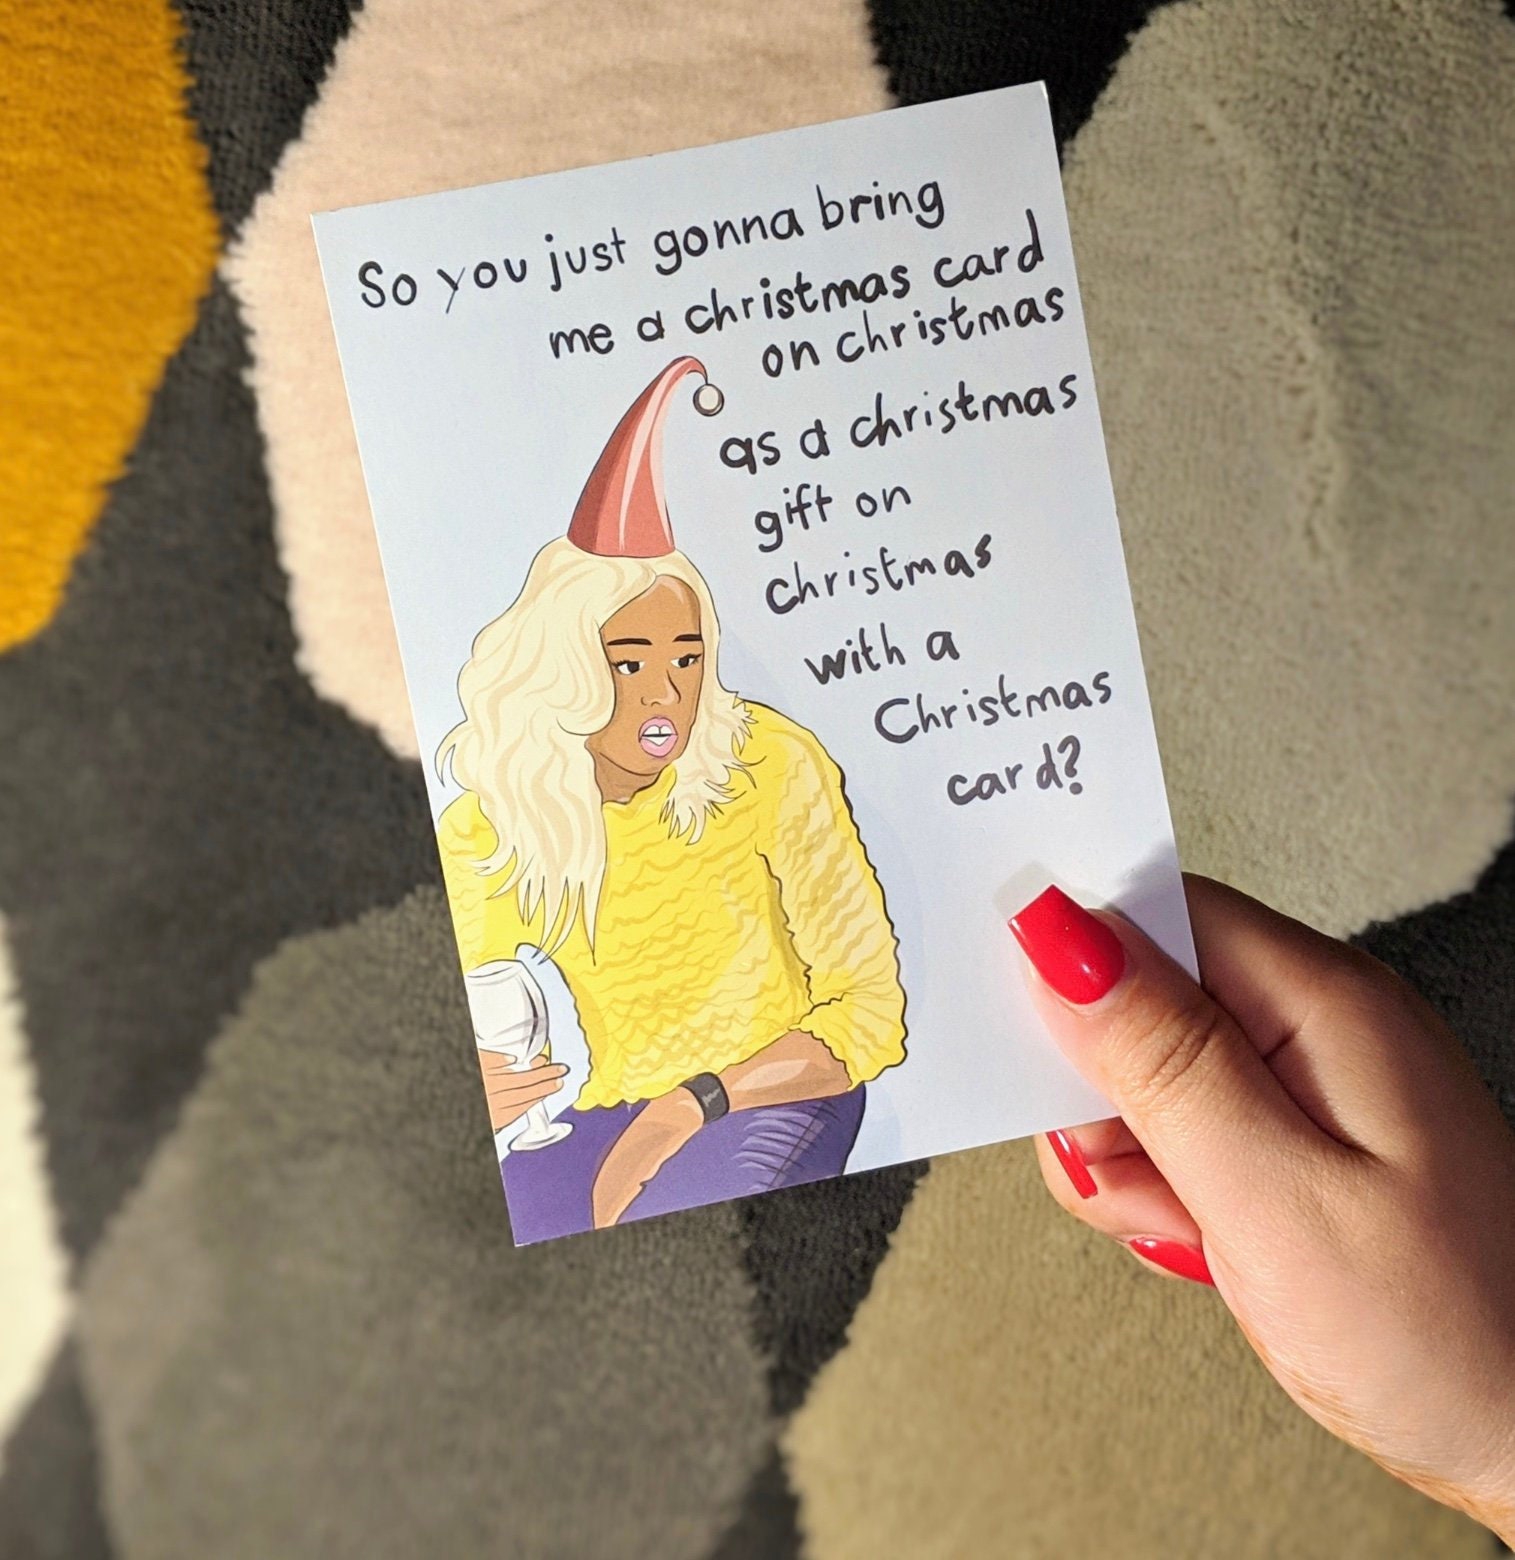 So you just gonna bring
me a christmas card
on christmas
as a christmas
gift on
christmas
with a
Christmas
card?